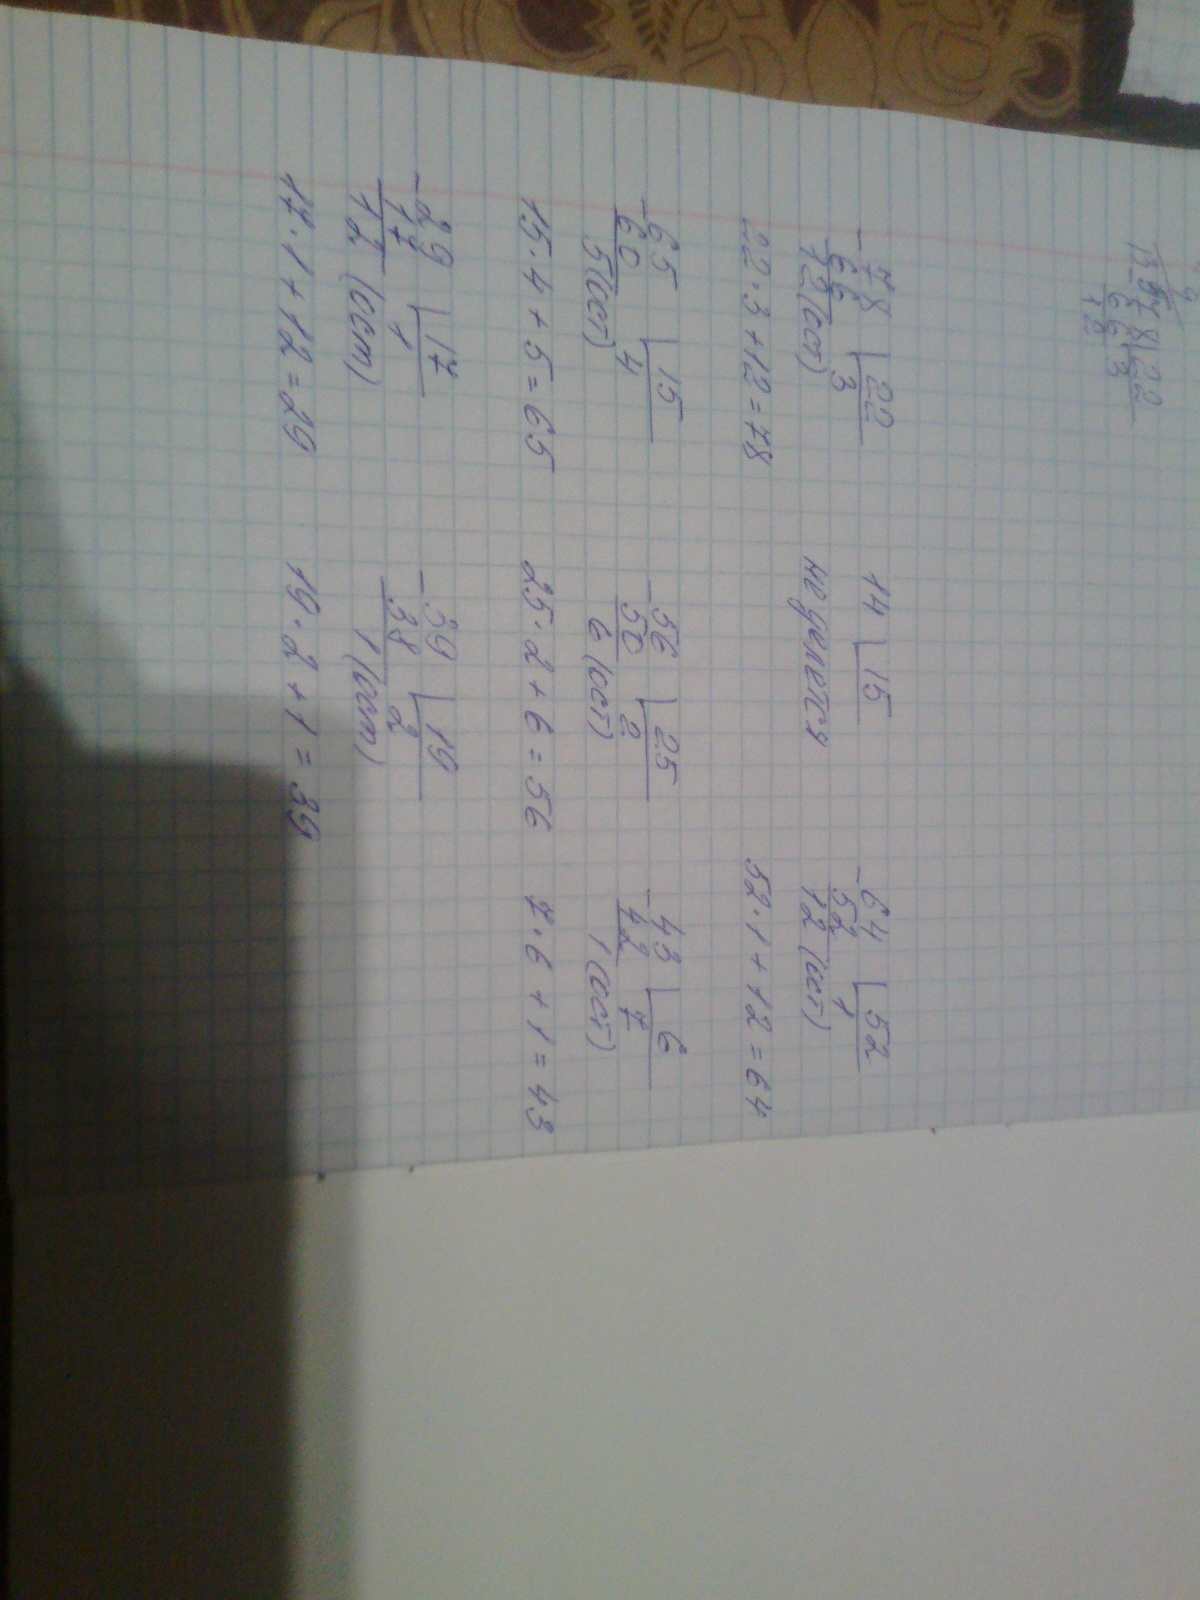 78 22
66 3
12 (ост)
22·3+12=78
14 15
не делется
64 52
52 1
12 (ост)
52·1+12=64
65 15
60 4
5 (ост)
15·4+5=65
56 25
50 2
6 (ост)
25·2+6=56
43 6
42 7
1 (ост)
7·6+1=43
29 17
17 1
12 (ост)
17·1+12=29
39 19
38 2
1 (ост)
19·2+1=39